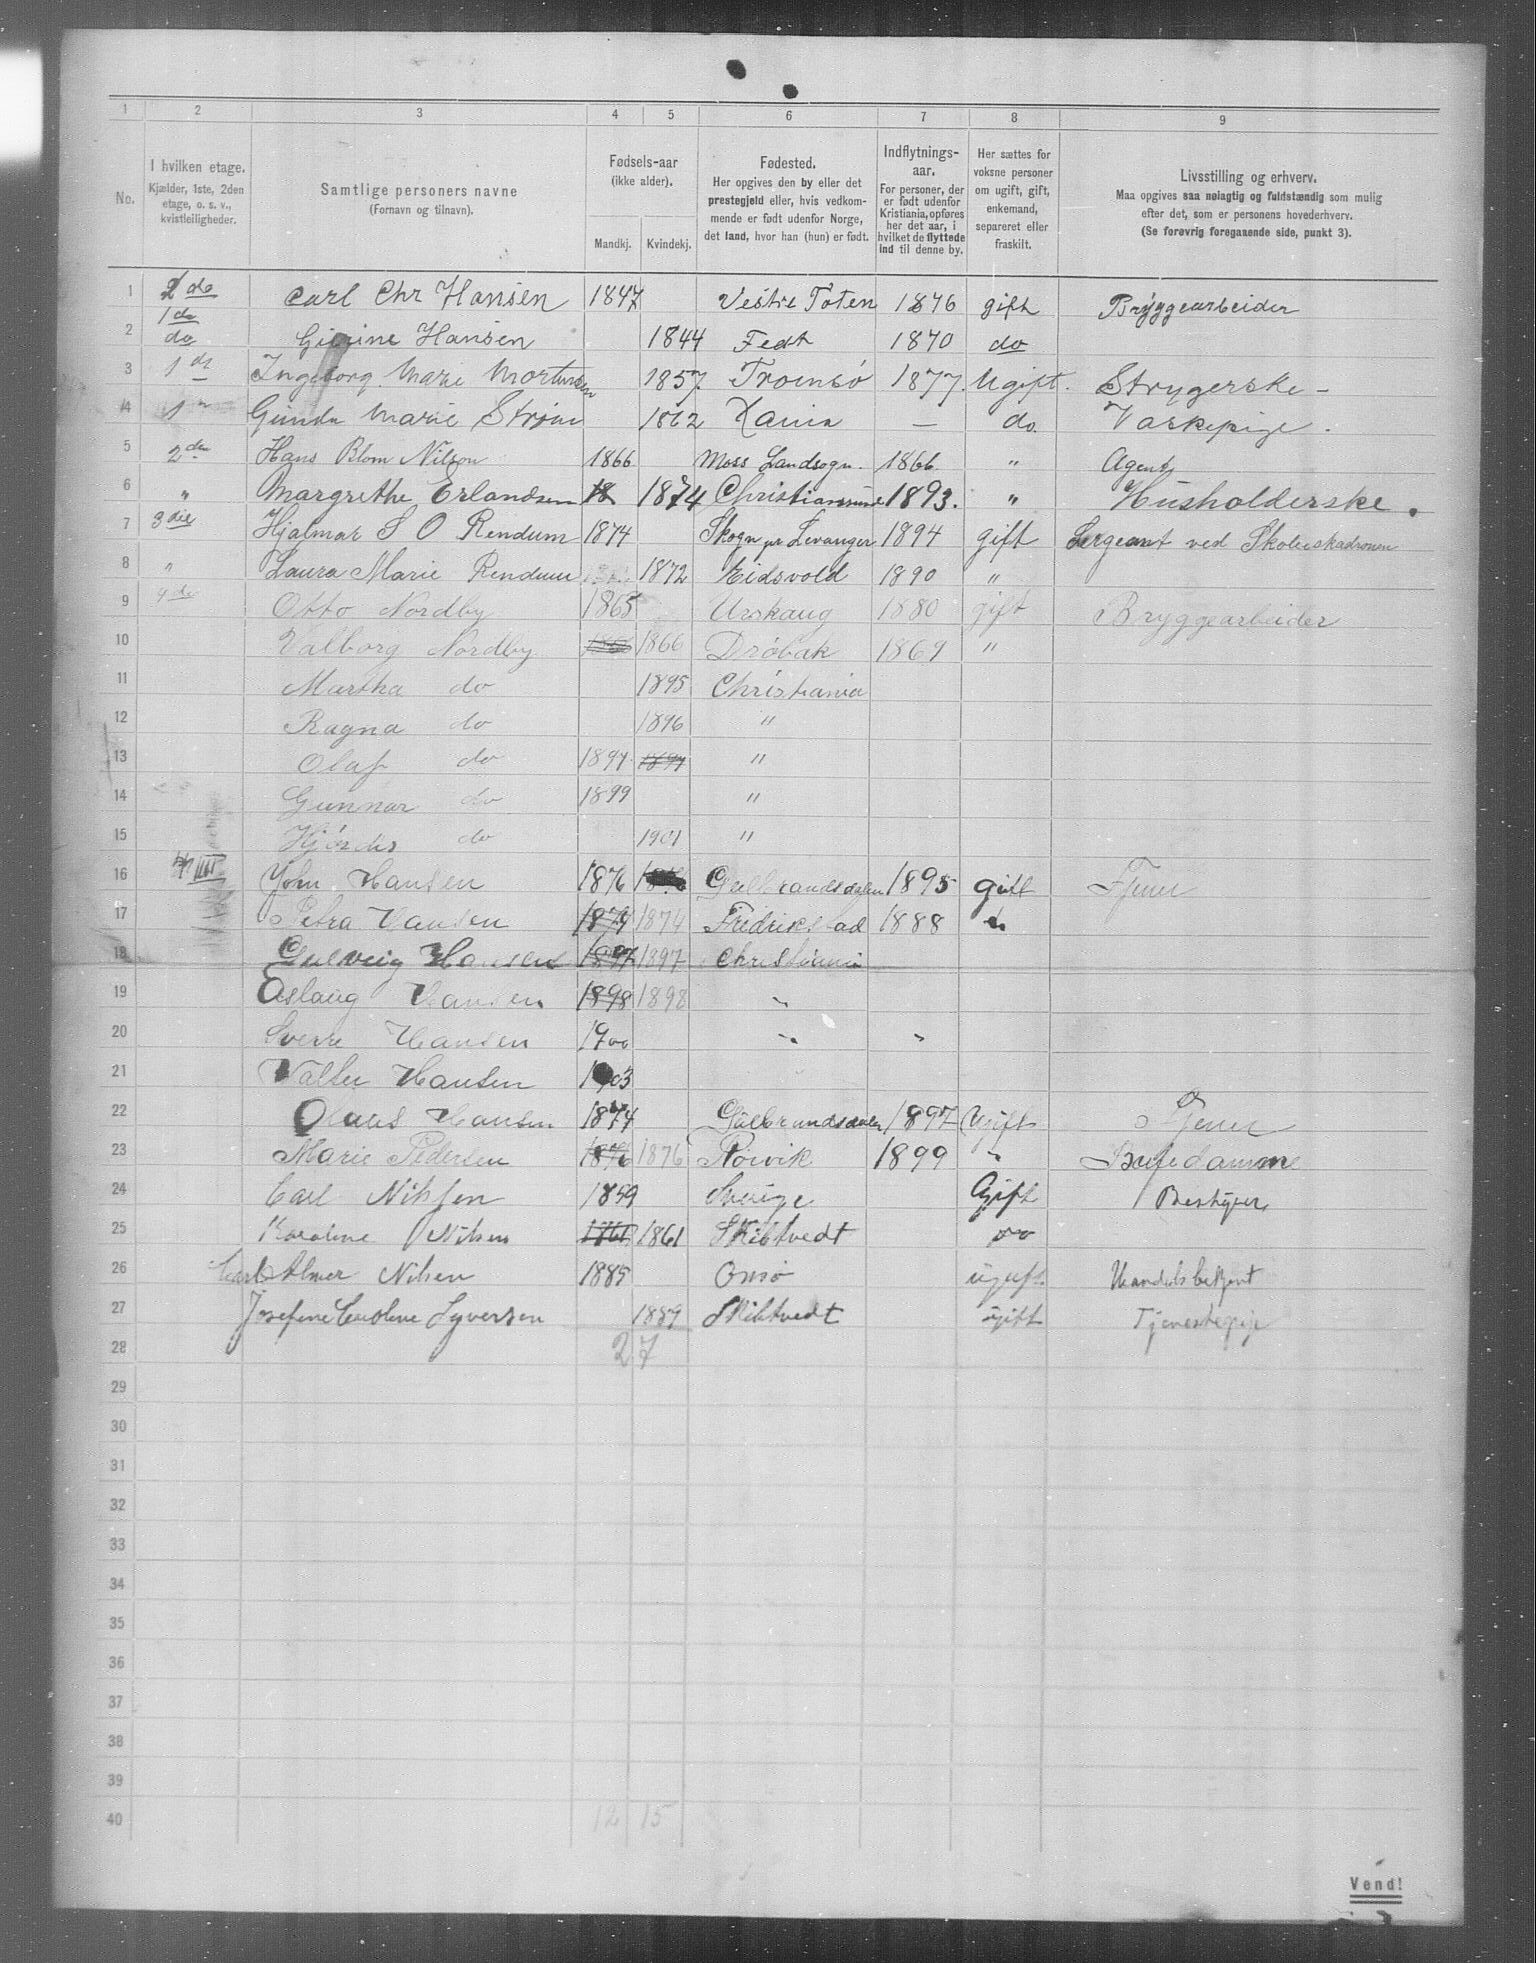 1 2 3 4 5 6 7 8 9
No.
I hvilken etage.
Kjælder, 1ste, 2den
etage, o. s. v.,
kvistleiligheder.
Samtlige personers navne
(Fornavn og tilnavn).
Fødsels-aar
(ikke alder).
Mandkj. Kvindekj.
Fødested.
Her opgives den by eller det
prestegjeld eller, hvis vedkom-
mende er født udenfor Norge,
det land, hvor han (hun) er født.
Indflytnings-
aar.
For personer, der
er født udenfor
Kristiania, opføres
her det aar, i
hvilket de flyttede
ind til denne by.
Her sættes for
voksne personer
om ugift, gift,
enkemand,
separeret eller
fraskilt.
Livsstilling og erhverv.
Maa opgives saa nøiagtig og fuldstændig som mulig
efter det, som er personens hovederhverv.
(Se forøvrig foregaaende side, punkt 3).
1 2 de Carl Chr Hansen 1847 Vestre Toten 1876 gift Bryggearbeider
2 1 de do Hansen 1844 Fedt 1870 do
3 1 de Ingeborg Marie Mortensen 1857 Tromsø 1877. Ugift. Strygerske -
4 1 Gunda Marie Strøm 1862 Xania — do. Vaskepige.
5 2den Hans Blom Nilson 1866 Moss Landsogn. 1866. " Agent
6 " Margrethe Erlandsen 18 1874 Christianssund 1893. " Husholderske.
7 3die Hjalmar S O Rendum 1874 Skogn pr Levanger 1894 gift Sergeant ved Skoleeskadronen
8 " Laura Marie Rendum 1872 Eidsvold 1890 "
9 4de Otto Nordby 1865 Urskaug 1880 gift Bryggearbeider
10 Valborg Nordby 1866 1866 Drøbak 1869 "
11 Martha do 1895 Christiania
12 Ragna do 1896 "
13 Olaf do 1897 1897 "
14 Gunnar do 1899 "
15 Hjørdis do 1901 "
16 John Hansen 1876 Gulbrandsdalen 1895 gift Tjener
17 Petra Hansen 1874 1874 Fredrikstad 1888 "
18 Hansen 1897 1897 Christiania
19 Aslaug Hansen 1898 1898 "
20 Sverre Hansen 1900 " "
21 Valter Hansen 1903
22 Hansen 1874 Gulbrandsdalen 1897 Ugift Tjener
23 Marie Pedersen 1876 1876 Rørvik 1899 " Bufedamme
24 Carl Nilsen 1859 Sverige Gift Bestyrer
25 Karoline Nilsen 1861 1861 Skibtvedt do
26 Carl Almer Nilsen 1885 Onsø ugift Handelsbetjent
27 Josefine Caroline Syversen 1889 Skibtvedt ugift Tjenestepige
28 27
29
30
31
32
33
34
35
36
37
38
39
40 12 15
Vend!